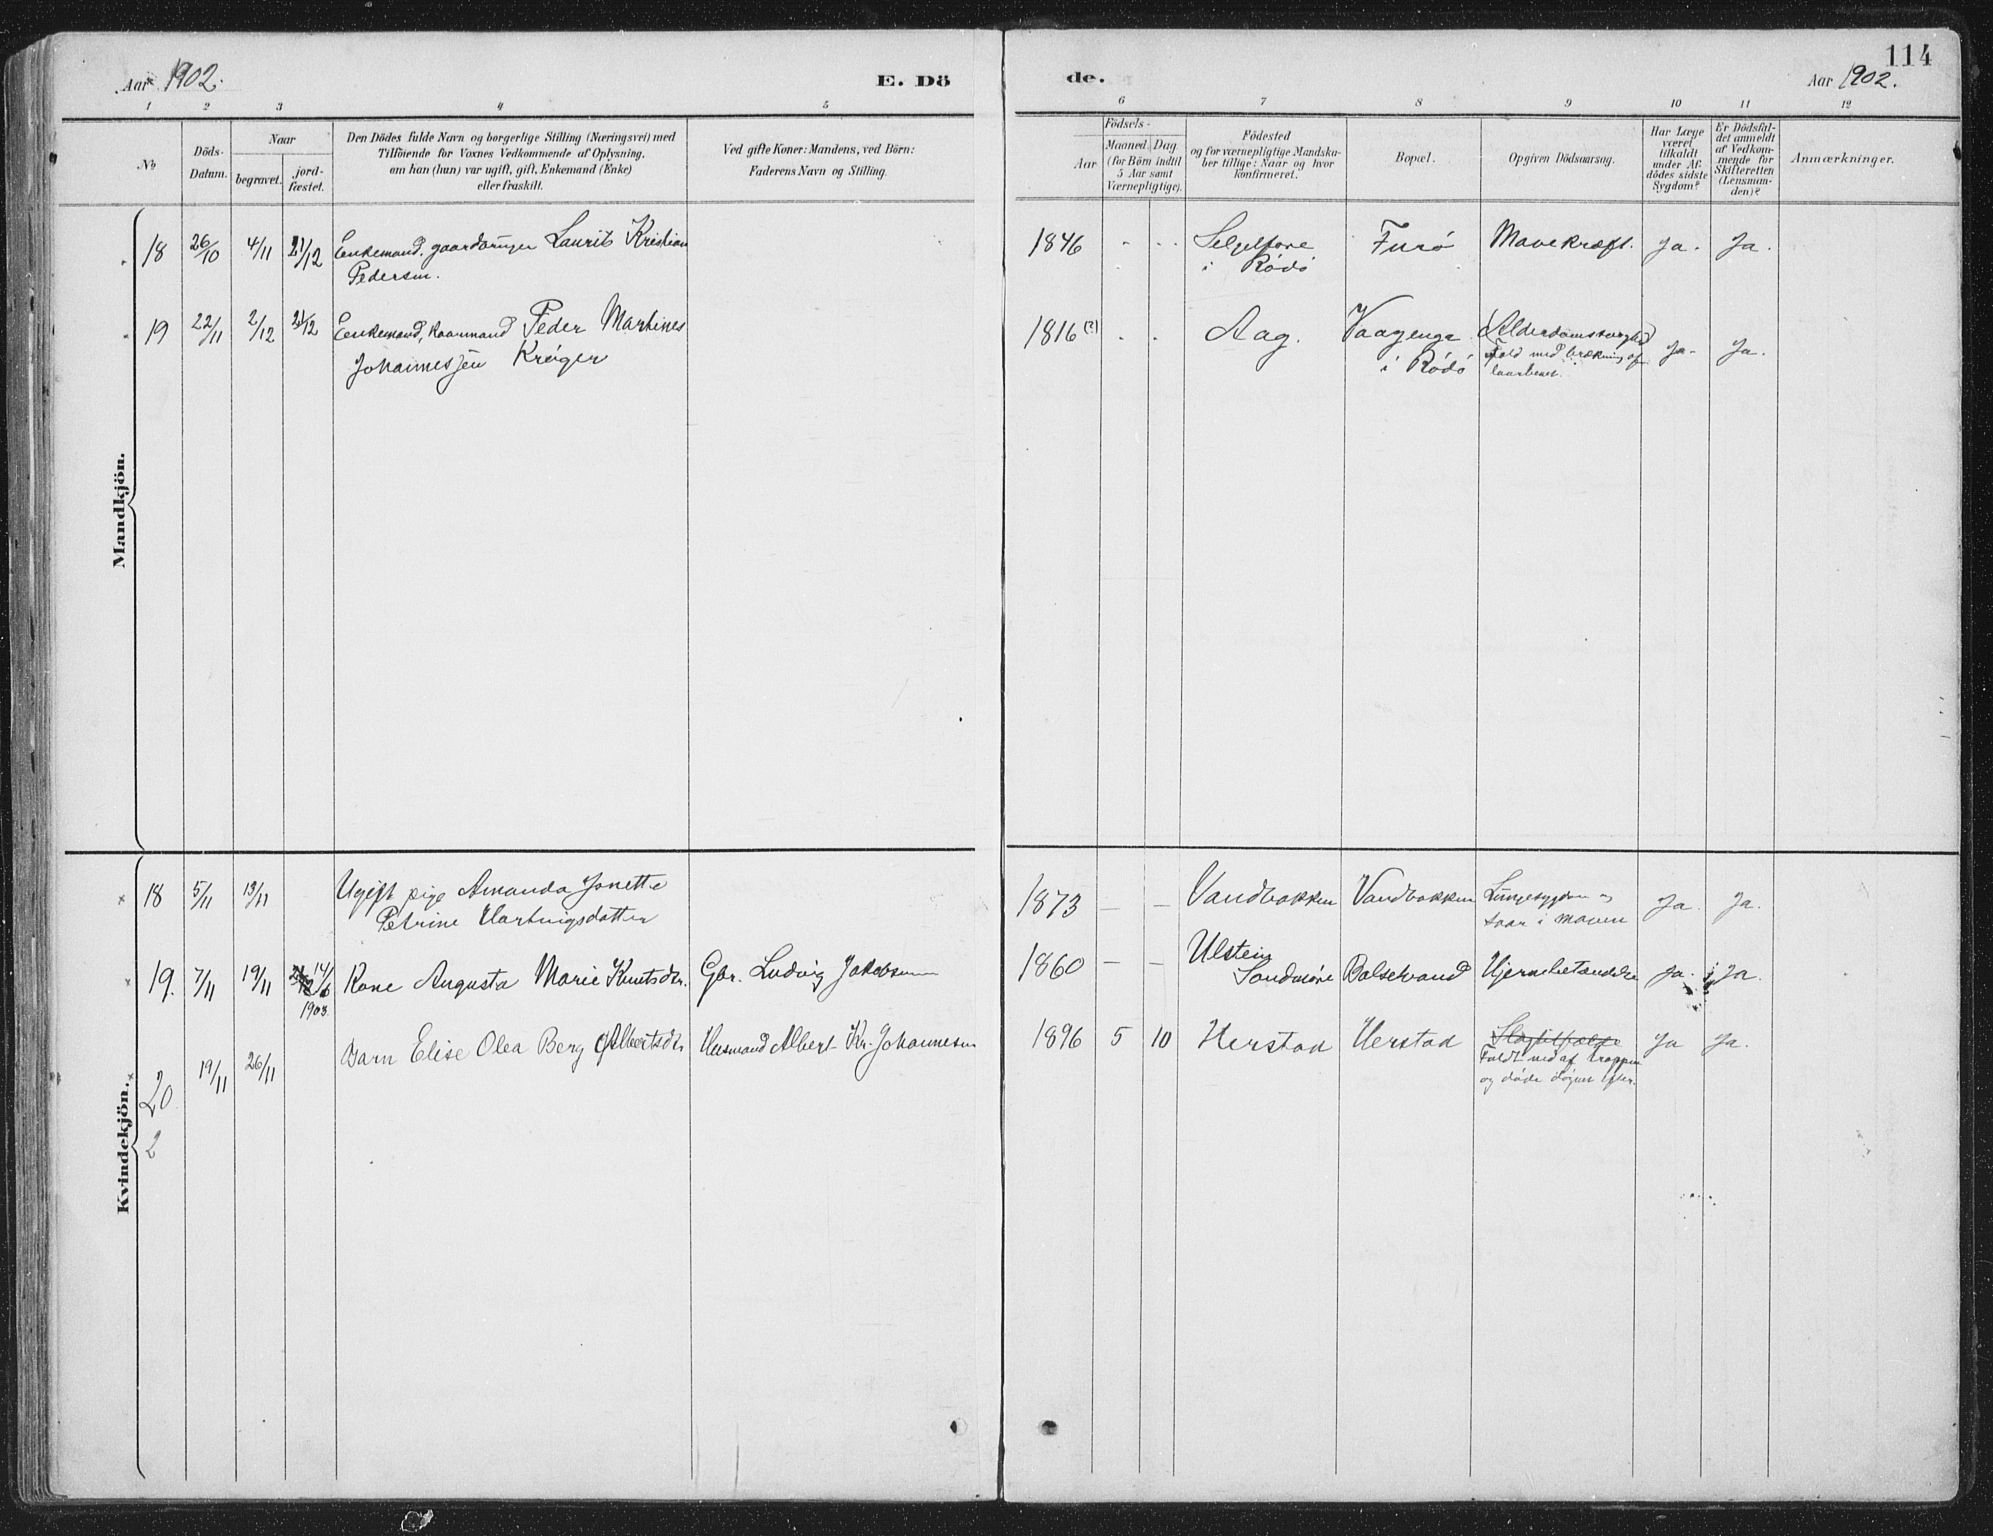 Aar 1902.
E. Döde.
Aar 1902.
114
1 2 3 4 5 6 7 8 9 10 11 12
No
Döds-Datum.
Naar
begravet.
jord-fæstet.
Den Dödes fulde Navn og borgerlige Stilling (Næringsvei) med
Tilföiende for Voxnes Vedkommende af Oplysning,
om han (hun) var ugift, gift, Enkemand (Enke)
eller fraskilt.
Ved gifte Koner: Mandens, ved Börn:
Faderens Navn og Stilling.
Födsels-
Aar
Maaned. Dag.
(for Börn indtil
5 Aar samt
Værnepligtige).
Födested
og for værnepligtige Mandska-
ber tillige: Naar og hvor
konfirmeret.
Bopæl.
Opgiven Dödsaarsag.
Har Læge
været
tilkaldt
under Af-
dödes sidste
Sygdom?
Er Dödsfal-
det anmeldt
af Vedkom-
mende for
Skifteretten
(Lensman-
den)?
Anmærkninger.
Mandkjön.
18 26/10 4/11 21/12 Enkemand, gaardbruger Laurits Kristian
Pedersen.
1846 Selsfore
i Rödö
Furö Mavekræft. Ja. Ja.
19 22/11 2/12 21/12 Enkemand, Kaarmand Peder Martines
Johannessen Kröger
1816 (?) Aag. Vaagenga
i Rödö
(Alderdomssvaghed)
Fald med brækning af
laarbenet.
Ja. Ja.
Kvindekjön.
18 5/11 13/11 Ugift pige Amanda Jonette
Petrine Hartvigsdatter
1873 — — Vandbakken Vandbakken Lungesygdom og
saar i maven
Ja. Ja.
19. 7/11 19/11 14/6
1903.
Kone Augusta Marie Knutsdr. Gbr. Ludvig Jakobsen
1860 — — Ulstein
Söndmöre
Balsevand Hjernebetændelse Ja. Ja.
20 19/11 26/11 Barn Elise Olea Berg Albertsdr. Husmand Albert Kr. Johannesen
1896 5 10 Herstad Herstad
Faldt ned af trappen
og döde dögnet efter.
Ja Ja.
2